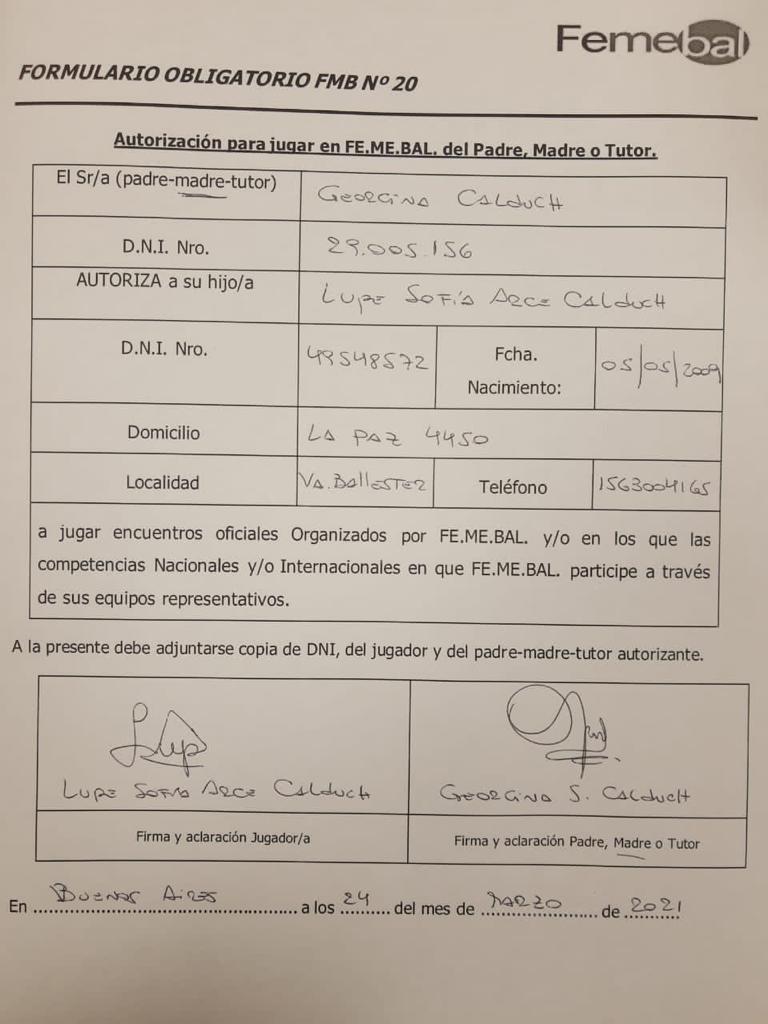 Femebal
FORMULARIO OBLIGATORIO FMB Nº 20
Autorización para jugar en FE.ME.BAL. del Padre, Madre o Tutor.
El Sr/a (padre-madre-tutor) GEORGINA CALDUCH
D.N.I. Nro. 29.005.156
AUTORIZA a su hijo/a LUPE SOFÍA ARCE CALDUCH
D.N.I. Nro. 49548572 Fcha. Nacimiento: 05/05/2009
Domicilio LA PAZ 4450
Localidad VA. BALLESTER Teléfono 1563004165
a jugar encuentros oficiales Organizados por FE.ME.BAL. y/o en los que las
competencias Nacionales y/o Internacionales en que FE.ME.BAL. participe a través
de sus equipos representativos.
A la presente debe adjuntarse copia de DNI, del jugador y del padre-madre-tutor autorizante.
Lupe
LUPE SOFIA ARCE CALDUCH GEORGINA S. CALDUCH
Firma y aclaración Jugador/a Firma y aclaración Padre, Madre o Tutor
En BUENOS AIRES a los 24 del mes de MARZO de 2021